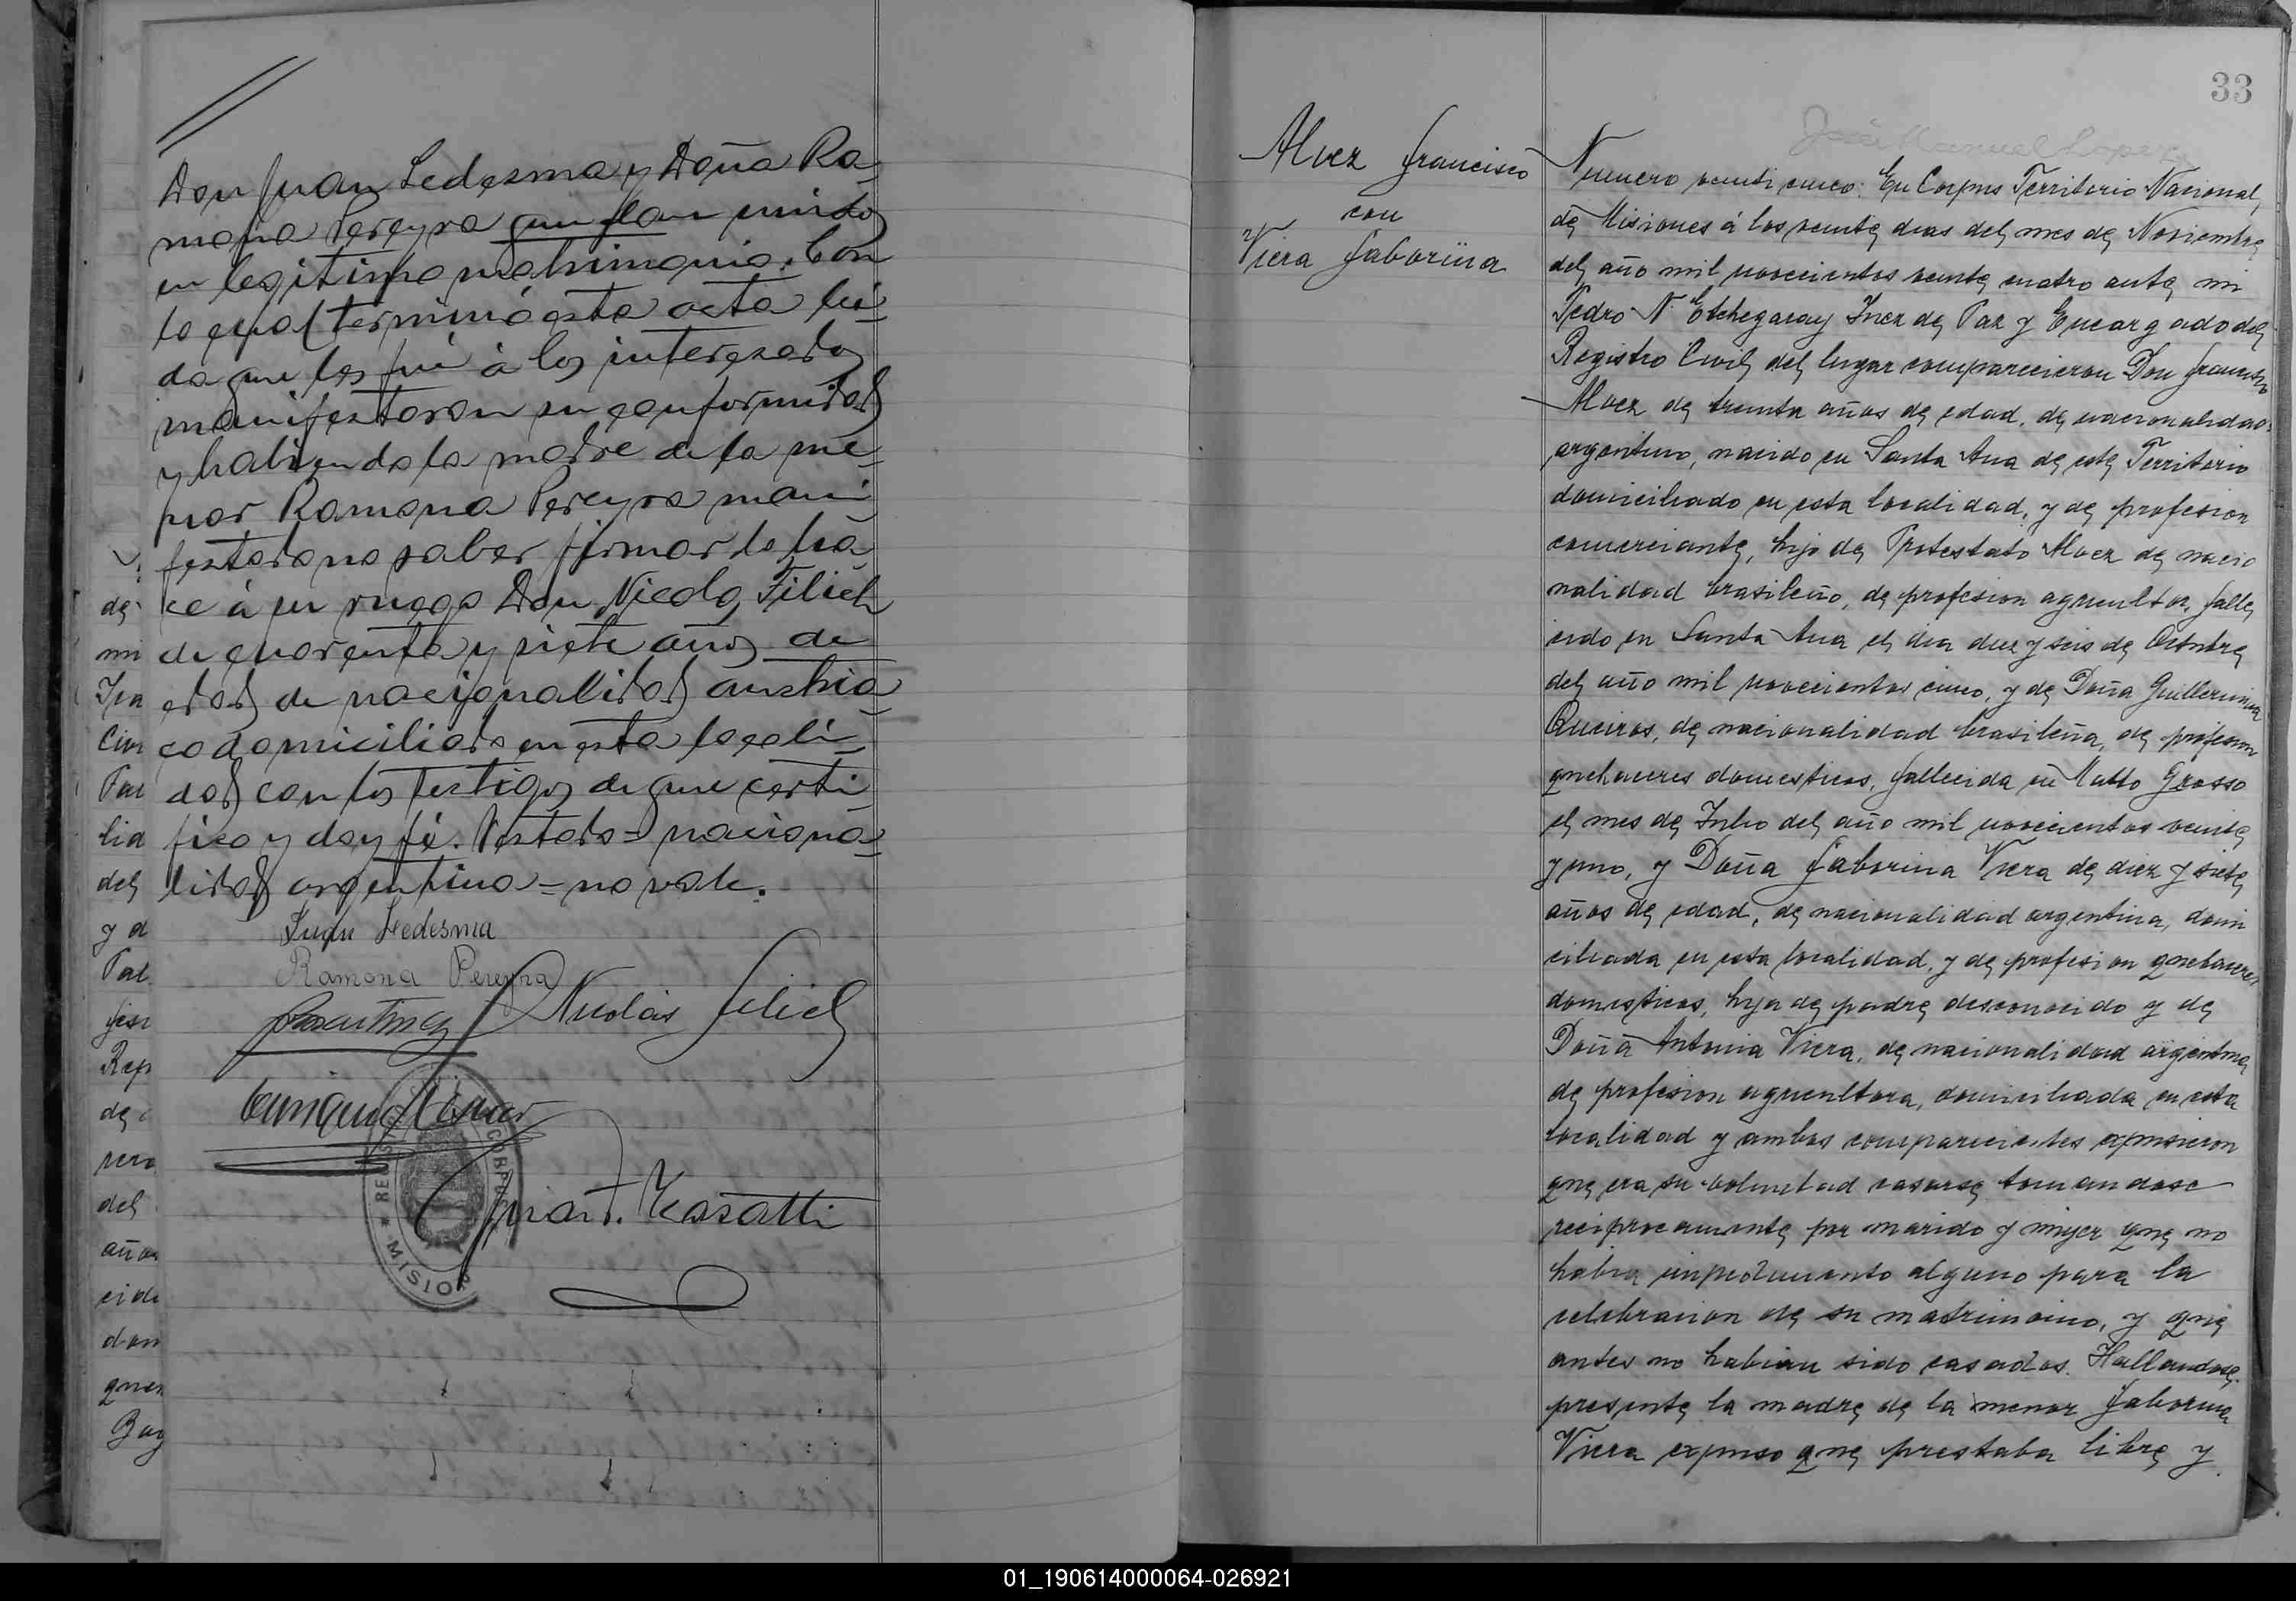 Don Juan Ledesma y Doña Ra-
mona Pereyra quedan unidos
en legitimo matrimonio. Con
lo cual terminó esta acta lei-
da que les fué á los interesados
manifestaron su conformidad
y habiendo la madre de la me-
nor Ramona Pereyra mani-
festado no saber firmar lo ha-
ce á su ruego Don Nicolas Filich
de cuarenta y siete años de
edad de nacionalidad austria-
co domiciliado en esta locali-
dad con los testigos de que certi-
fico y doy fé. Testado = naciona-
lidad argentina = no vale.
Juan Ledesma
Ramona Pereyra
Nicolás Filich
Juan T. Casatti
REGIS CORPUS
MISION
de
mi
Civi
lid
del
y d
Rep
de
del
años
cide
dom
33
José Manuel Lopez
Alvez Francisco
con
Viera Faborina
Numero veinticinco: En Corpus Territorio Nacional,
de Misiones á los veinte dias del mes de Noviembre
del año mil novecientos veinte cuatro ante mi
Pedro N Etchegaray Juez de Paz y Encargado del
Registro Civil del lugar comparecieron Don Francisco
Alvez de treinta años de edad, de nacionalidad
argentino, nacido en Santa Ana de este Territorio
domiciliado en esta localidad, y de profesion
comerciante, hijo de Protestato Alvez de nacio
nalidad brasileño, de profesion agricultor, falle
cido en Santa Ana el dia diez y seis de Octubre
del año mil novecientos cinco, y de Doña Guillermina
Queiros, de nacionalidad brasileña, de profesion
quehaceres domesticos, fallecida en Matto Grosso
el mes de Julio del año mil novecientos veinte
y uno, y Doña Faborina Viera de diez y siete
años de edad, de nacionalidad argentina, domi
ciliada en esta localidad, y de profesion quehaceres
domesticos, hija de padre desconocido y de
Doña Antonia Viera, de nacionalidad argentina,
de profesion agricultora, domiciliada en esta
localidad y ambos comparecientes expusieron
que era su voluntad casarse tomandose
reciprocamente por marido y mujer que no
habia impedimento alguno para la
celebracion de su matrimonio, y que
antes no habian sido casados. Hallandose
presente la madre de la menor Faborina
Viera expuso que prestaba libre y
01_190614000064-026921